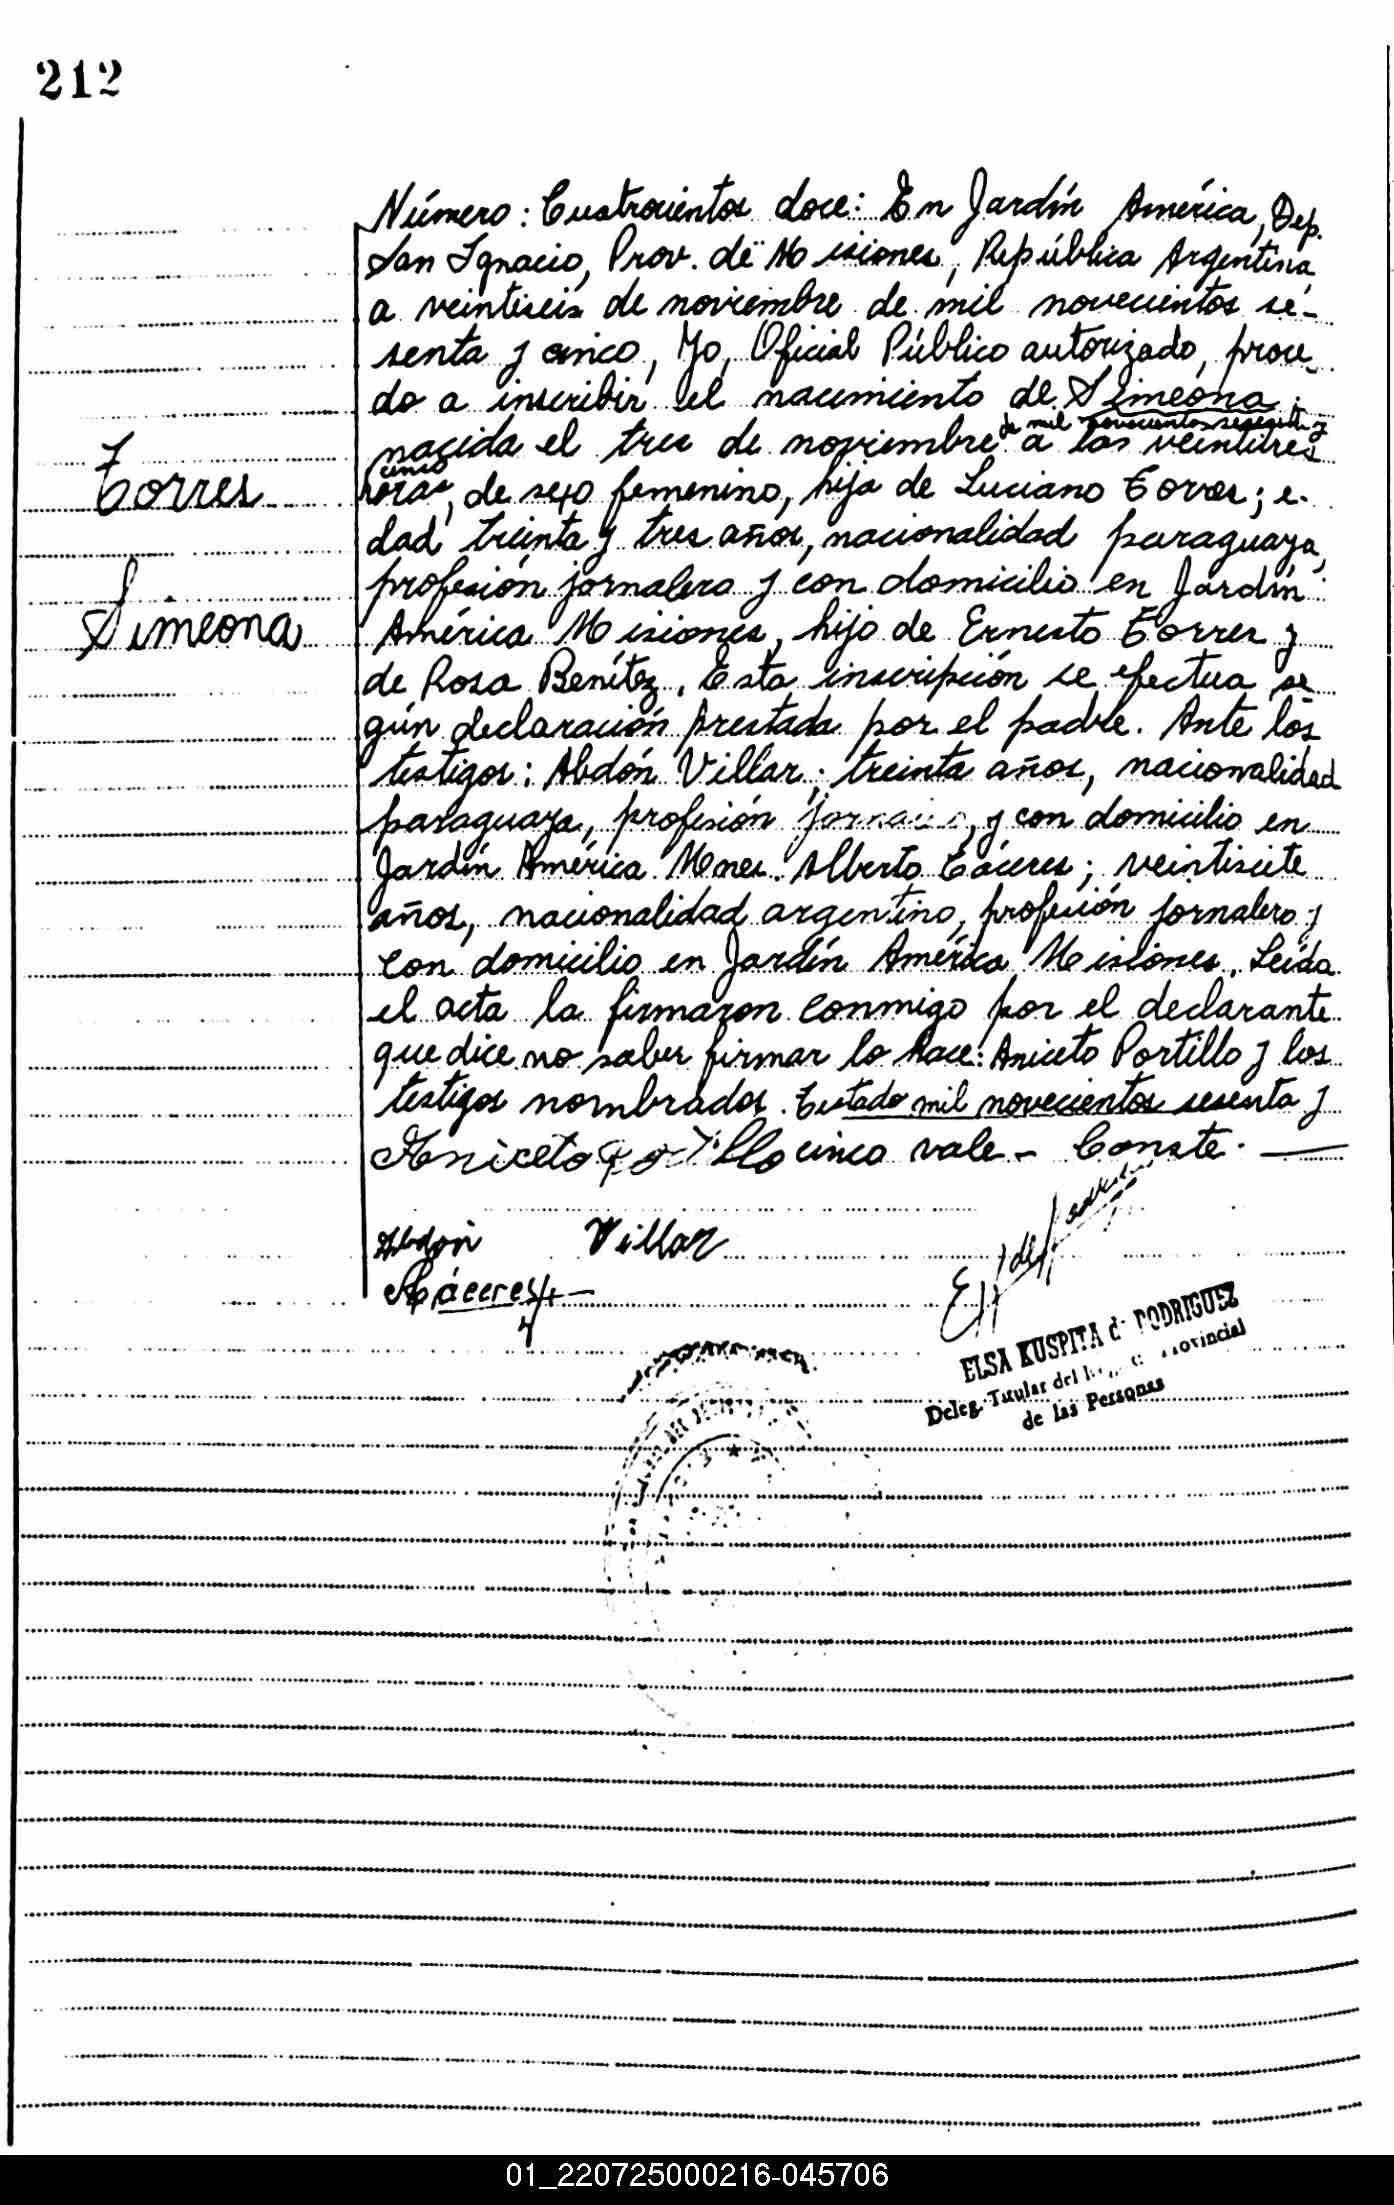 212
Número: Cuatrocientos doce: En Jardín América, Dep.
San Ignacio, Prov. de Misiones, República Argentina,
a veintiseis de noviembre de mil novecientos se-
senta y cinco, Yo, Oficial Público autorizado, proce-
do a inscribir el nacimiento de Simeona;
de mil novecientos sesenta y
nacida el tres de noviembre a las veintitres
cinco
Torres
horas, de sexo femenino, hija de Luciano Torres; e-
dad treinta y tres años, nacionalidad paraguaya,
profesión jornalero y con domicilio en Jardín
Simeona
América Misiones, hijo de Ernesto Torres y
de Rosa Benítez. Esta inscripción se efectua se
gún declaración prestada por el padre. Ante los
testigos: Abdón Villar; treinta años, nacionalidad
paraguaya, profesión y con domicilio en
Jardín América Mones. Alberto Cáceres; veintisiete
años, nacionalidad argentino, profesión jornalero y
con domicilio en Jardín América Misiones. Leída
el acta la firmaron conmigo por el declarante
que dice no saber firmar lo hace: Aniceto Portillo y los
testigos nombrados. Testado mil novecientos sesenta y
Aniceto Portillo cinco vale - Conste.
Abdon Villar
A Cáceres
ELSA KUSPITA de RODRIGUEZ
Deleg. Titular del Provincial
de las Personas
01_220725000216-045706